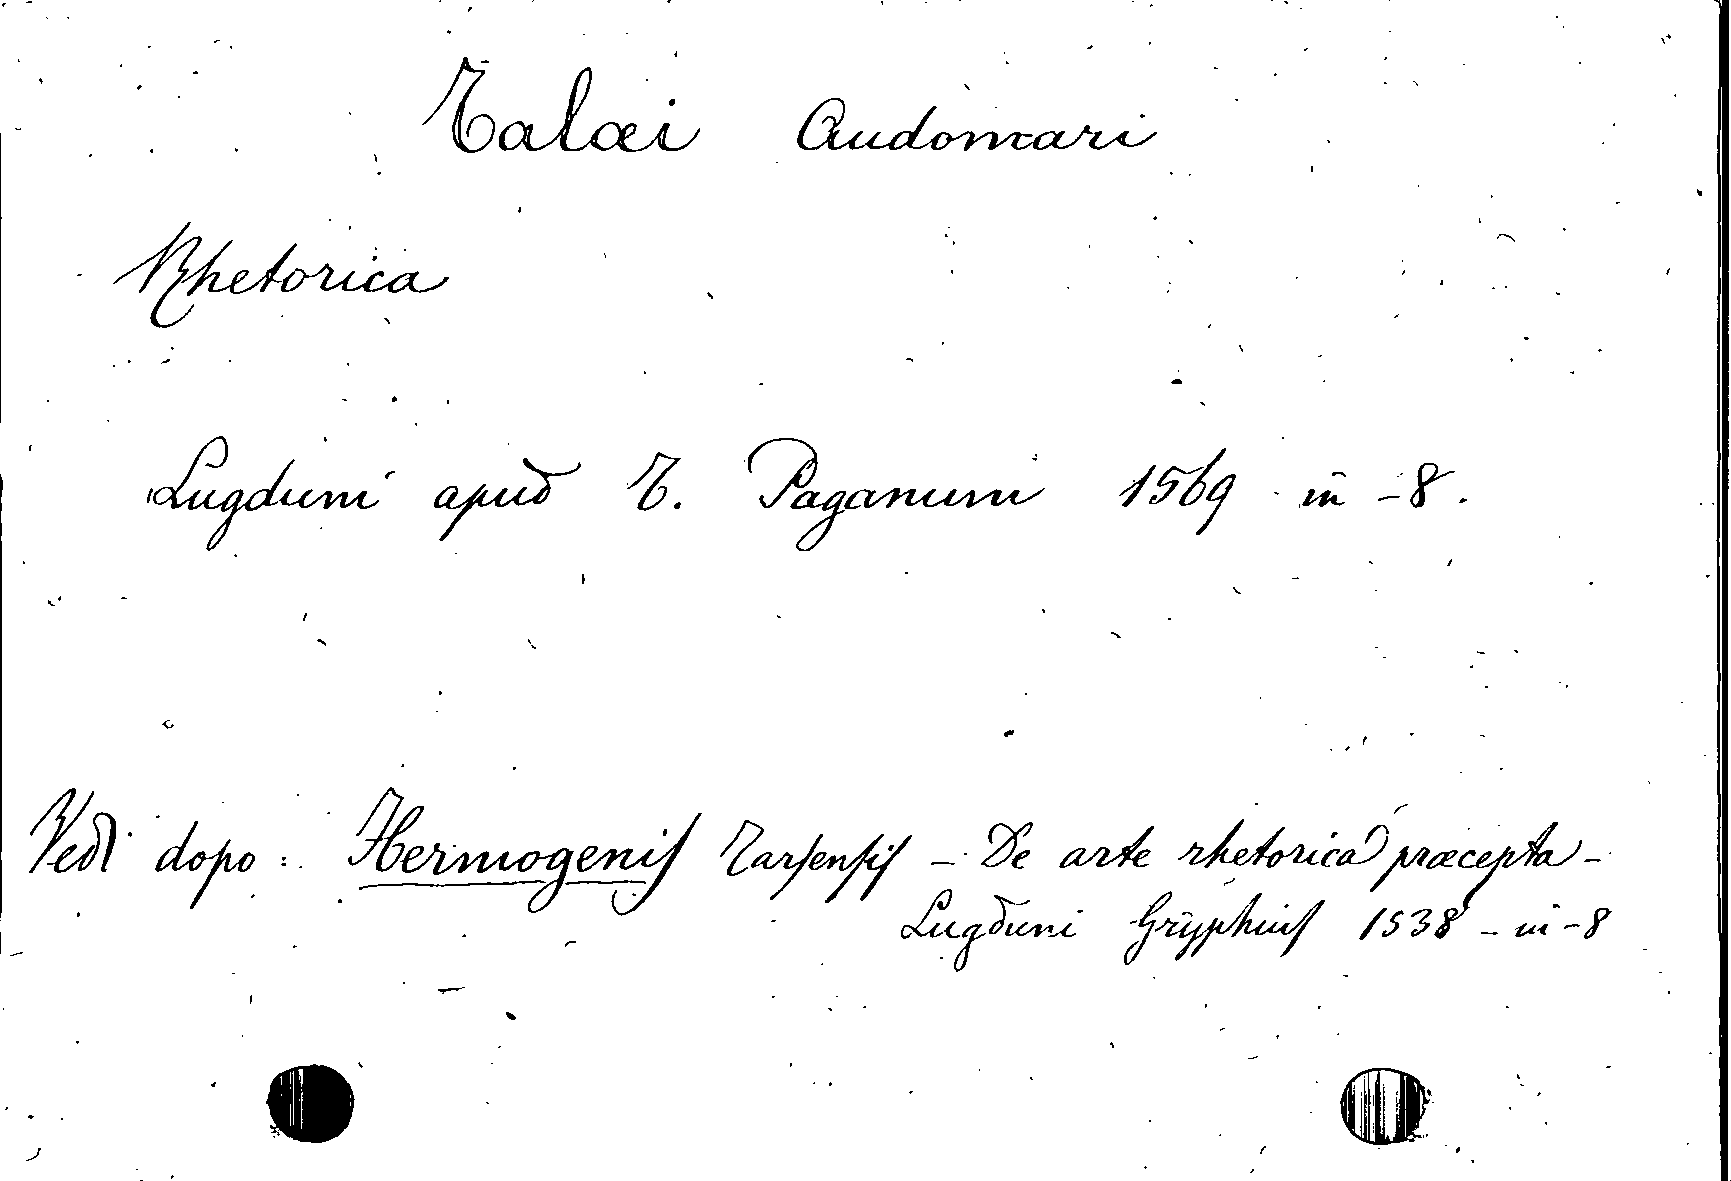 Talæi Audomari
Rhetorica
Lugduni apud T. Paganum 1569 in-8.
Vedi dopo: Hermogenis Tarsensis - De arte rhetorica præcepta -
Lugduni Gryphius 1538 - in-8